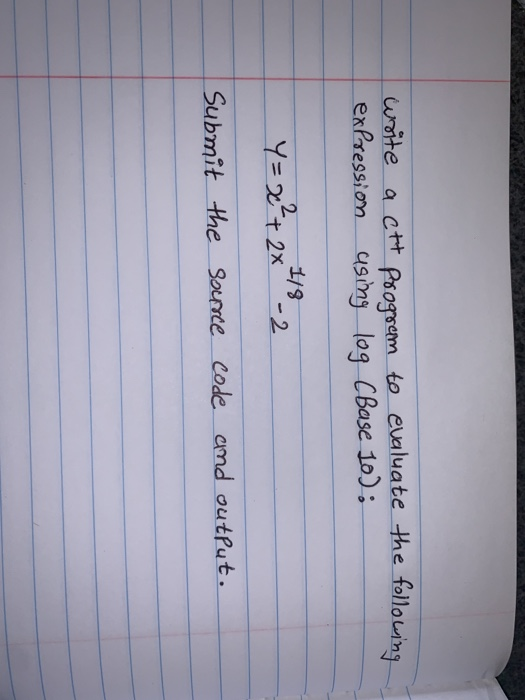 write a c++ program to evaluate the following
expression using log (Base 10):
y = x² + 2x^1/8 - 2
Submit the source code and output.